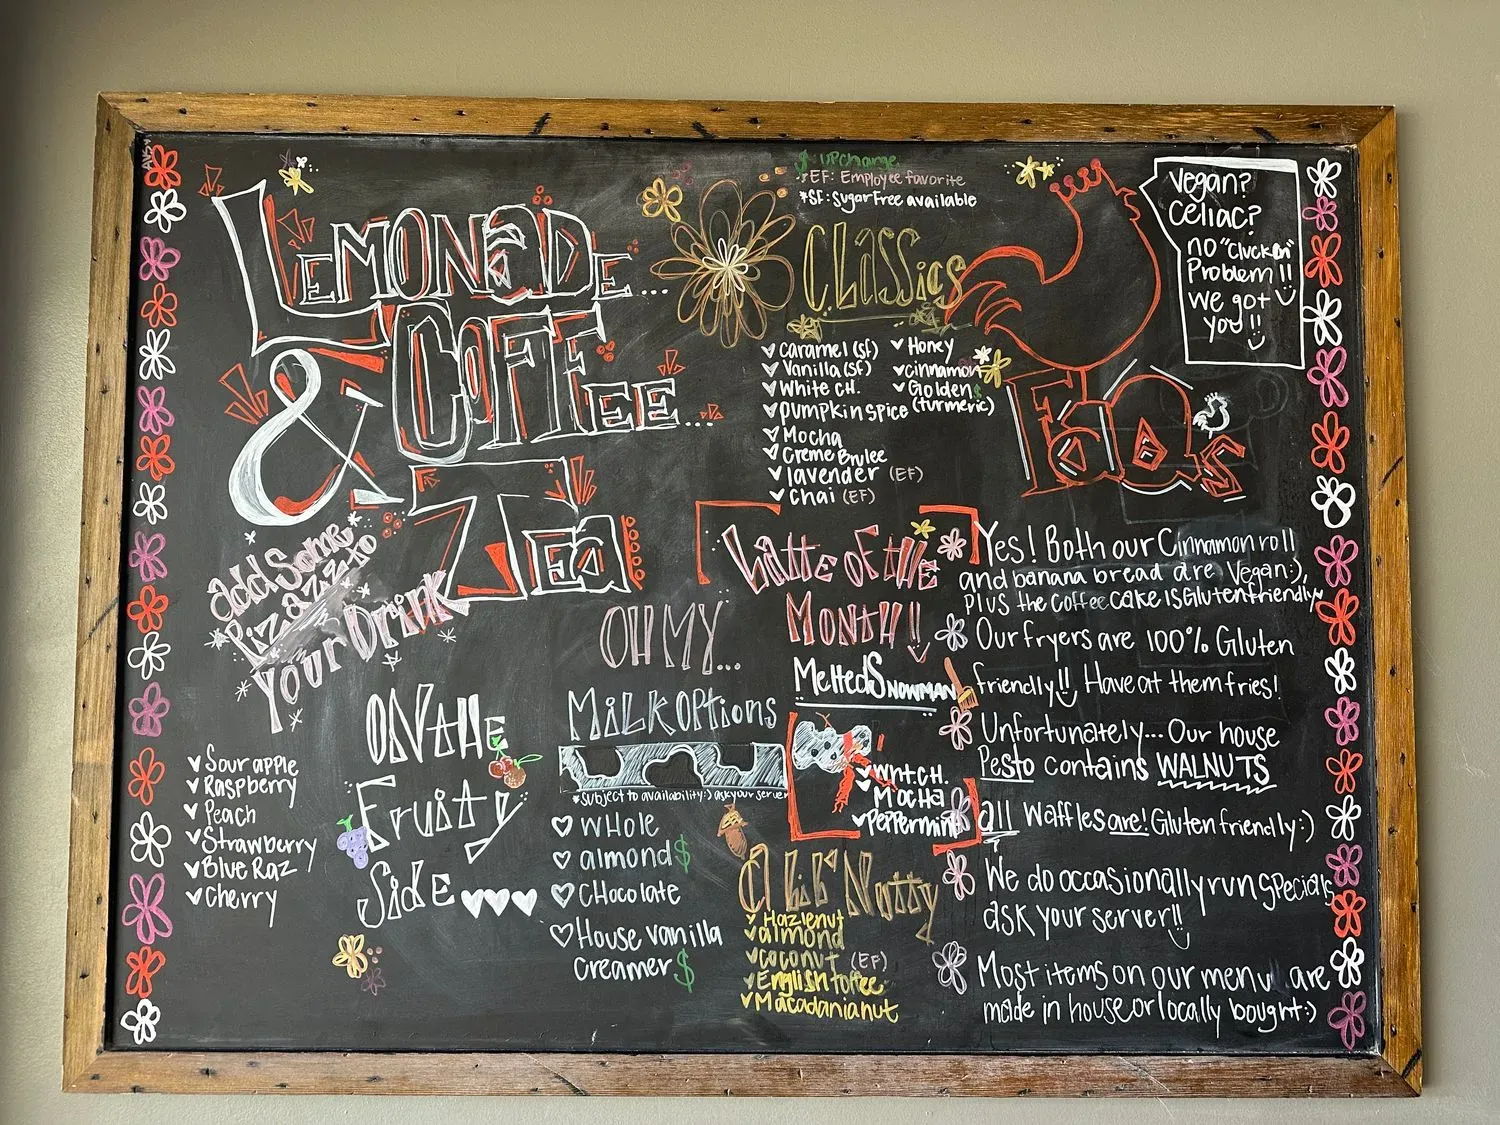 Lemonade...
& Coffee...
Tea
add Some
Pizzazz to
Your Drink
ON the
Fruity
Side
Sour apple
Raspberry
Peach
Strawberry
Blue Raz
Cherry
OH MY...
Milk Options
*Subject to availability:) ask your server
WHOLE
almond $
CHocolate
House vanilla
creamer $
$ upcharge
*EF: Employee favorite
*SF: Sugar Free available
Classics
Caramel (SF)
Vanilla (SF)
White CH.
pumpkin spice
Mocha
Creme Brulee
lavender (EF)
Chai (EF)
Honey
cinnamon
Golden $
(turmeric)
Latte of the
Month!!
Melted Snowman
Wht. CH.
Mocha
Peppermint
A Lil' Nutty
Hazlenut
almond
coconut (EF)
English toffee
Macadamia nut
Vegan?
Celiac?
no "Cluckin"
Problem!!
we got
you!!
Yes! Both our Cinnamon roll
and banana bread are Vegan:),
Plus the coffee cake is Gluten friendly
Our fryers are 100% Gluten
friendly!! Have at them fries!
Unfortunately... Our house
Pesto contains WALNUTS
all Waffles are! Gluten friendly:)
We do occasionally run Specials
ask your server!!
Most items on our menu are
made in house or locally bought:)